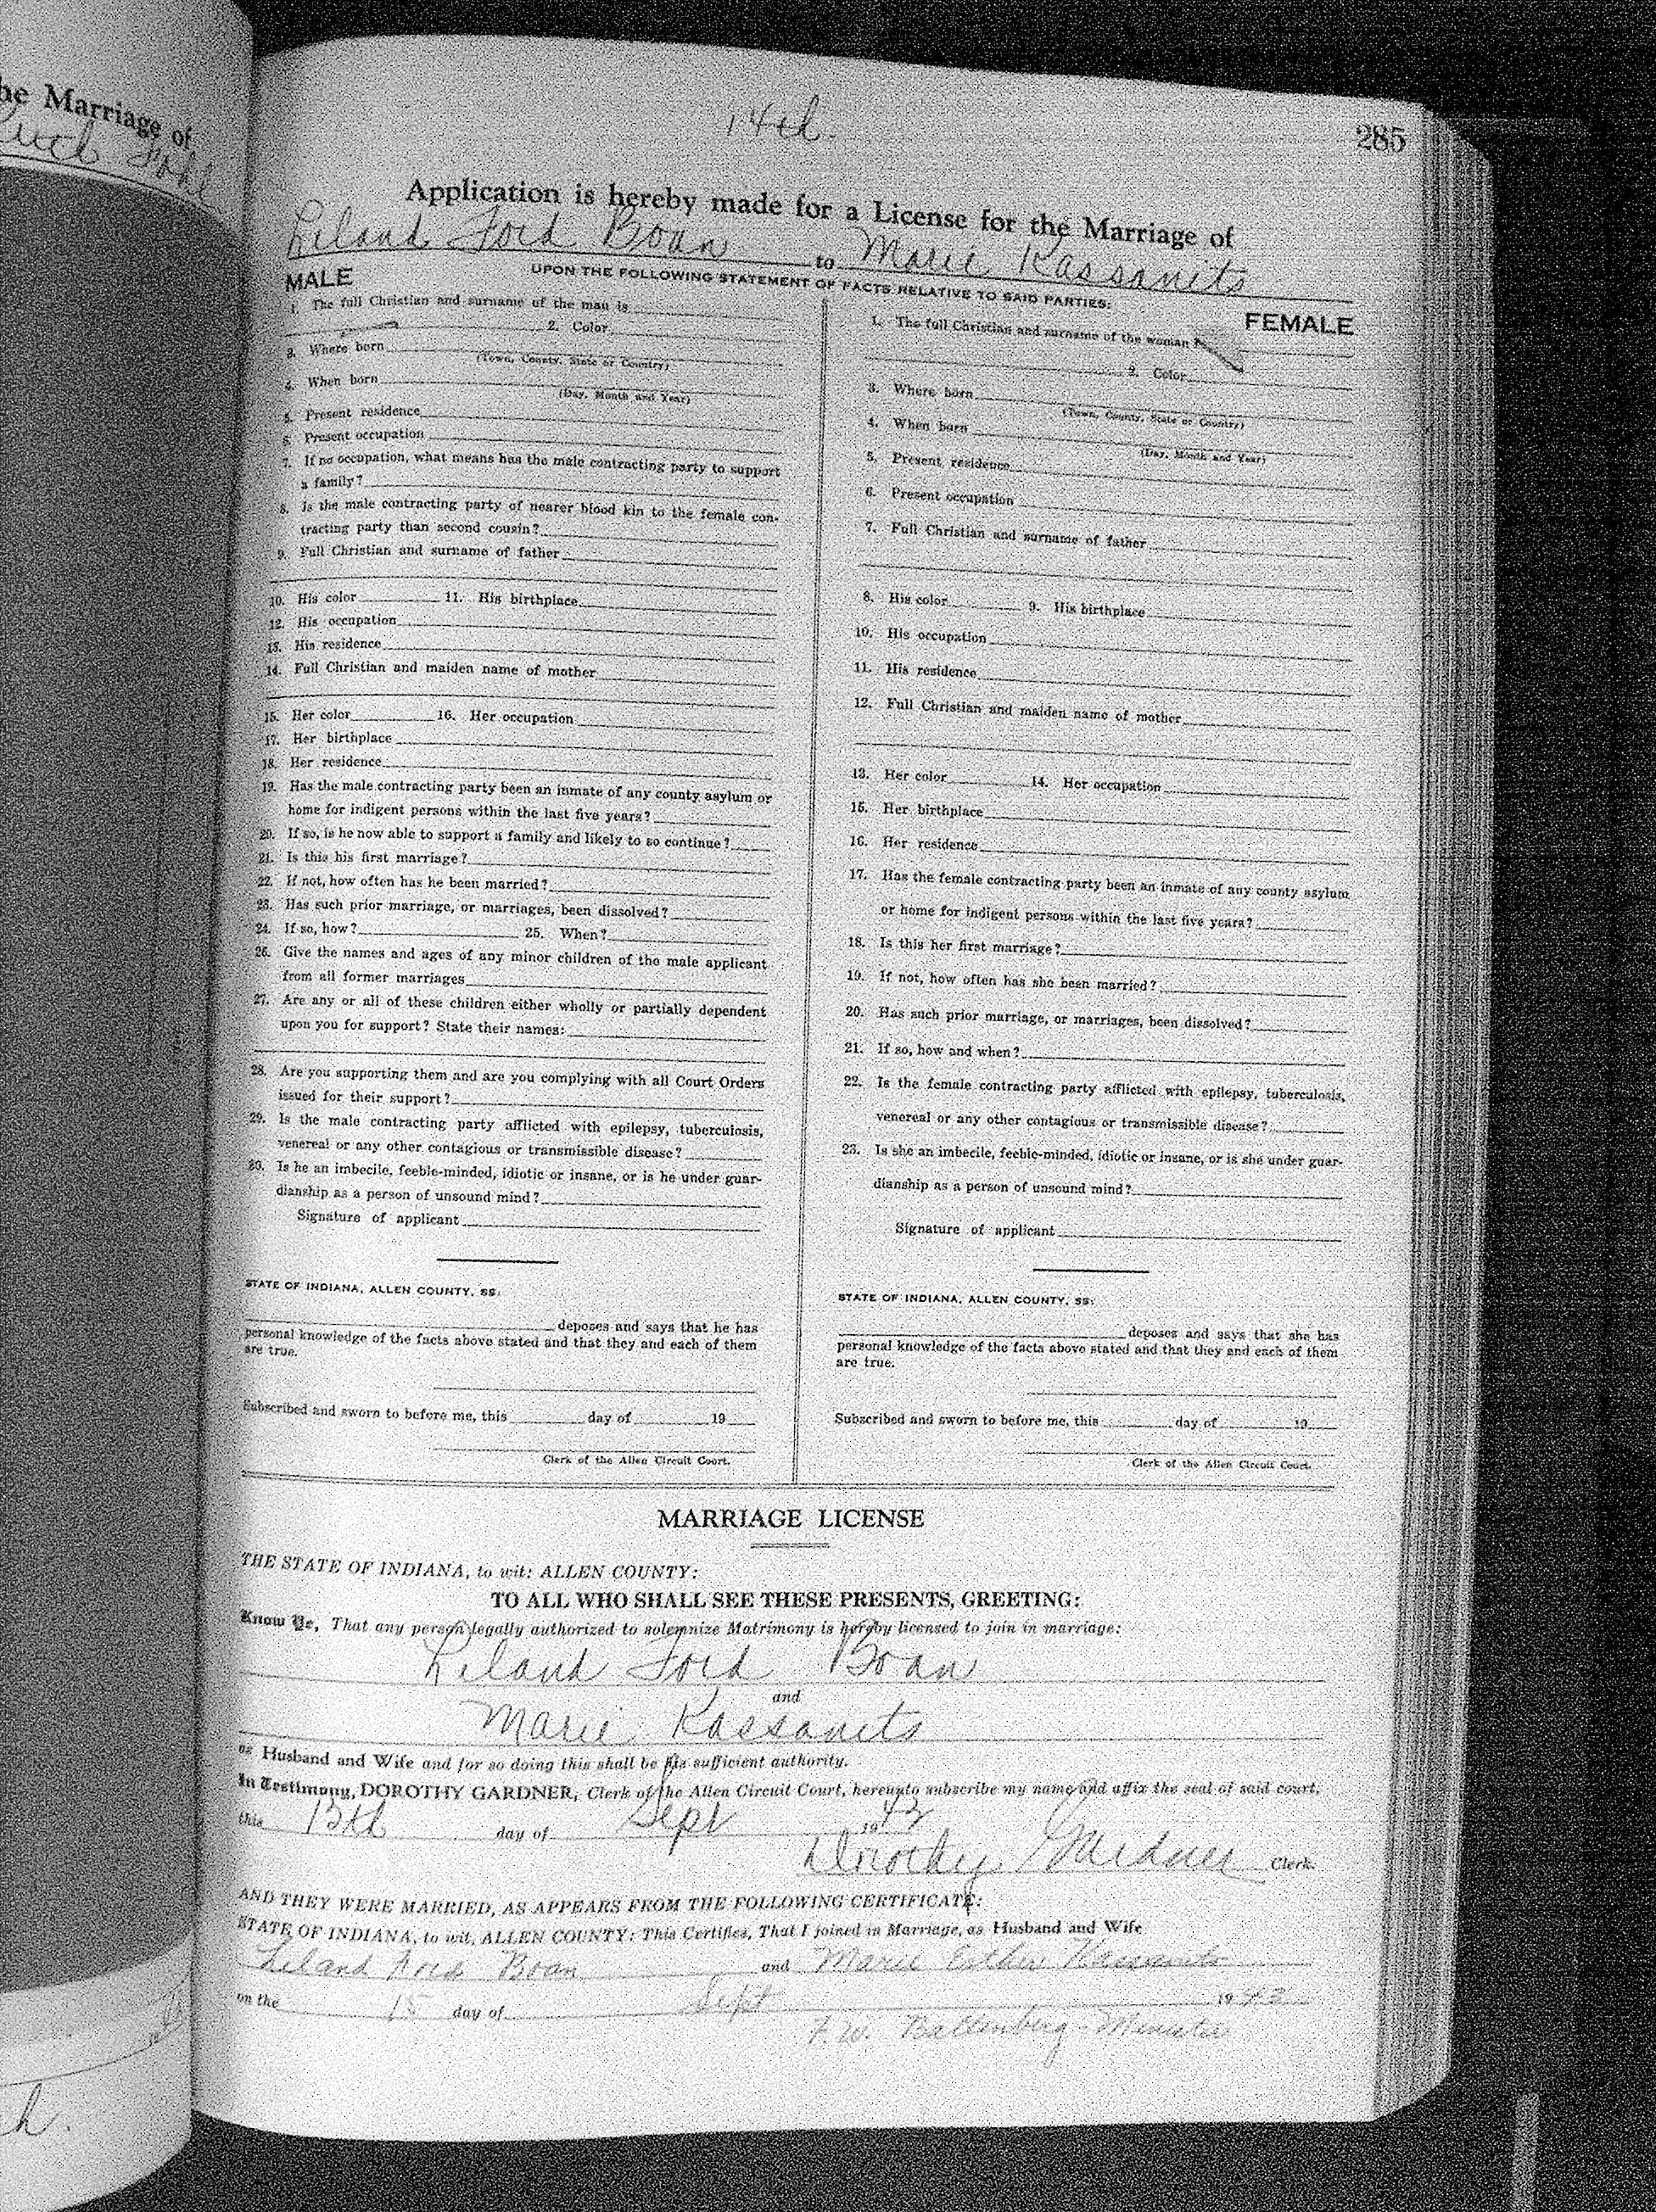 he Marriage of
14th.
285
Application is hereby made for a License for the Marriage of
Leland Ford Boan to Marie Kassanits
UPON THE FOLLOWING STATEMENT OF FACTS RELATIVE TO SAID PARTIES:
MALE
1. The full Christian and surname of the man is
2. Color
3. Where born
(Town, County, State or Country)
4. When born
(Day, Month and Year)
5. Present residence
6. Present occupation
7. If no occupation, what means has the male contracting party to support
a family?
8. Is the male contracting party of nearer blood kin to the female con-
tracting party than second cousin?
9. Full Christian and surname of father
10. His color 11. His birthplace
12. His occupation
13. His residence
14. Full Christian and maiden name of mother
15. Her color 16. Her occupation
17. Her birthplace
18. Her residence
19. Has the male contracting party been an inmate of any county asylum or
home for indigent persons within the last five years?
20. If so, is he now able to support a family and likely to so continue?
21. Is this his first marriage?
22. If not, how often has he been married?
23. Has such prior marriage, or marriages, been dissolved?
24. If so, how? 25. When?
26. Give the names and ages of any minor children of the male applicant
from all former marriages
27. Are any or all of these children either wholly or partially dependent
upon you for support? State their names:
28. Are you supporting them and are you complying with all Court Orders
issued for their support?
29. Is the male contracting party afflicted with epilepsy, tuberculosis,
venereal or any other contagious or transmissible disease?
30. Is he an imbecile, feeble-minded, idiotic or insane, or is he under guar-
dianship as a person of unsound mind?
Signature of applicant
STATE OF INDIANA, ALLEN COUNTY, SS:
deposes and says that he has
personal knowledge of the facts above stated and that they and each of them
are true.
Subscribed and sworn to before me, this day of 19
Clerk of the Allen Circuit Court.
FEMALE
1. The full Christian and surname of the woman is
2. Color
3. Where born
(Town, County, State or Country)
4. When born
(Day, Month and Year)
5. Present residence
6. Present occupation
7. Full Christian and surname of father
8. His color 9. His birthplace
10. His occupation
11. His residence
12. Full Christian and maiden name of mother
13. Her color 14. Her occupation
15. Her birthplace
16. Her residence
17. Has the female contracting party been an inmate of any county asylum
or home for indigent persons within the last five years?
18. Is this her first marriage?
19. If not, how often has she been married?
20. Has such prior marriage, or marriages, been dissolved?
21. If so, how and when?
22. Is the female contracting party afflicted with epilepsy, tuberculosis,
venereal or any other contagious or transmissible disease?
23. Is she an imbecile, feeble-minded, idiotic or insane, or is she under guar-
dianship as a person of unsound mind?
Signature of applicant
STATE OF INDIANA, ALLEN COUNTY, SS:
deposes and says that she has
personal knowledge of the facts above stated and that they and each of them
are true.
Subscribed and sworn to before me, this day of 19
Clerk of the Allen Circuit Court.
MARRIAGE LICENSE
THE STATE OF INDIANA, to wit: ALLEN COUNTY:
TO ALL WHO SHALL SEE THESE PRESENTS, GREETING:
Know Ye, That any person legally authorized to solemnize Matrimony is hereby licensed to join in marriage:
Leland Ford Boan
and
Marie Kassanits
as Husband and Wife and for so doing this shall be his sufficient authority.
In Testimony, DOROTHY GARDNER, Clerk of the Allen Circuit Court, hereunto subscribe my name and affix the seal of said court,
this 13th day of Sept 1943
Dorothy Gardner Clerk.
AND THEY WERE MARRIED, AS APPEARS FROM THE FOLLOWING CERTIFICATE:
STATE OF INDIANA, to wit, ALLEN COUNTY: This Certifies, That I joined in Marriage, as Husband and Wife
Leland Ford Boan and Marie Esther Kassanits
on the 15 day of Sept 1943
F. W. Ballenberg - Minister